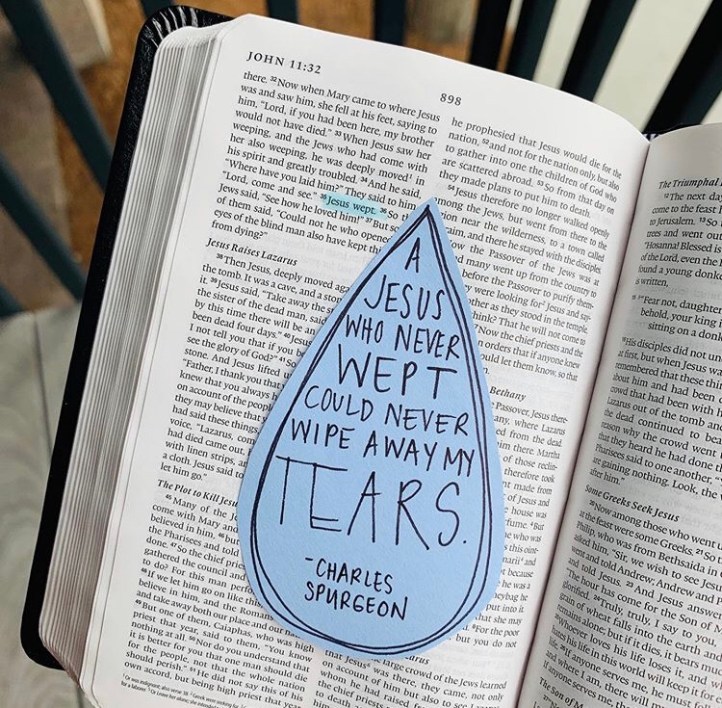 JOHN 11:32
898
there. 32Now when Mary came to where Jesus
was and saw him, she fell at his feet, saying to
him, "Lord, if you had been here, my brother
would not have died." 33When Jesus saw her
weeping, and the Jews who had come with
her also weeping, he was deeply moved1 in
his spirit and greatly troubled. 34And he said,
"Where have you laid him?" They said to him,
"Lord, come and see." 35Jesus wept. 36So the
Jews said, "See how he loved him!" 37But some
of them said, "Could not he who opened
eyes of the blind man also have kept
from dying?"
Jesus Raises Lazarus
38Then Jesus, deeply moved
the tomb. It was a cave, and a
it. 39Jesus said, "Take away the
the sister of the dead man, said
by this time there will be an
been dead four days." 40Jesus
I not tell you that if you
see the glory of God?" 41So
stone. And Jesus lifted
"Father, I thank you that
knew that you always
on account of the people
they may believe that
had said these things
voice, "Lazarus, come
had died came out,
with linen strips, and
a cloth. Jesus said to
let him go."
The Plot to Kill Jesus
45Many of the
come with Mary and
believed in him, 46but
the Pharisees and told
done. 47So the chief
gathered the council and
to do? For this man
48If we let him go on like this
believe in him, and the Romans
and take away both our place and our
49But one of them, Caiaphas, who was high
priest that year, said to them, "You know
nothing at all. 50Nor do you understand that
it is better for you that one man should die
for the people, not that the whole nation
should perish." 51He did not say this of his
own accord, but being high priest that year
he prophesied that Jesus would die for the
nation, 52and not for the nation only, but also
to gather into one the children of God who
are scattered abroad. 53So from that day on
they made plans to put him to death.
54Jesus therefore no longer walked openly
among the Jews, but went from there to the
region near the wilderness, to a town called
and there he stayed with the disciples.
the Passover of the Jews was at
many went up from the country to
before the Passover to purify
were looking for Jesus and
as they stood in the temple,
think? That he will not come to
Now the chief priests and the
orders that if anyone knew
let them know, so that
Bethany
Passover, Jesus
where Lazarus
from the dead.
there. Martha
of those
therefore took
made from
of Jesus and
house was
But
who was
this
because
he was a
put into it
that she may
For the poor
but you do not
large crowd of the Jews learned
that Jesus was there, they came, not only
on account of him but also to see
whom he had raised
the chief priests
to death
A
JESUS
WHO NEVER
WEPT
COULD NEVER
WIPE AWAY MY
TEARS.
-CHARLES
SPURGEON
The Triumphal
12The next day
come to the feast
to Jerusalem. 13So
trees and went out
"Hosanna! Blessed is
of the Lord, even the
found a young
written,
15"Fear not, daughter
behold, your king
sitting on a
16His disciples did not
at first, but when Jesus was
remembered that these
about him and had been
crowd that had been with
Lazarus out of the tomb and
the dead continued to
reason why the crowd went
that they heard he had done
Pharisees said to one another,
are gaining nothing. Look, the
after him."
Some Greeks Seek Jesus
20Now among those who went
at the feast were some Greeks. 21So
Philip, who was from Bethsaida in
asked him, "Sir, we wish to see Jesus
went and told Andrew; Andrew and
and told Jesus. 23And Jesus answered
"The hour has come for the Son of
glorified. 24Truly, truly, I say to you,
grain of wheat falls into the earth and
remains alone; but if it dies, it bears much
Whoever loves his life loses it, and
hates his life in this world will keep it for
life. 26If anyone serves me, he must
and where I am, there will my
If anyone serves me, the
The Son of